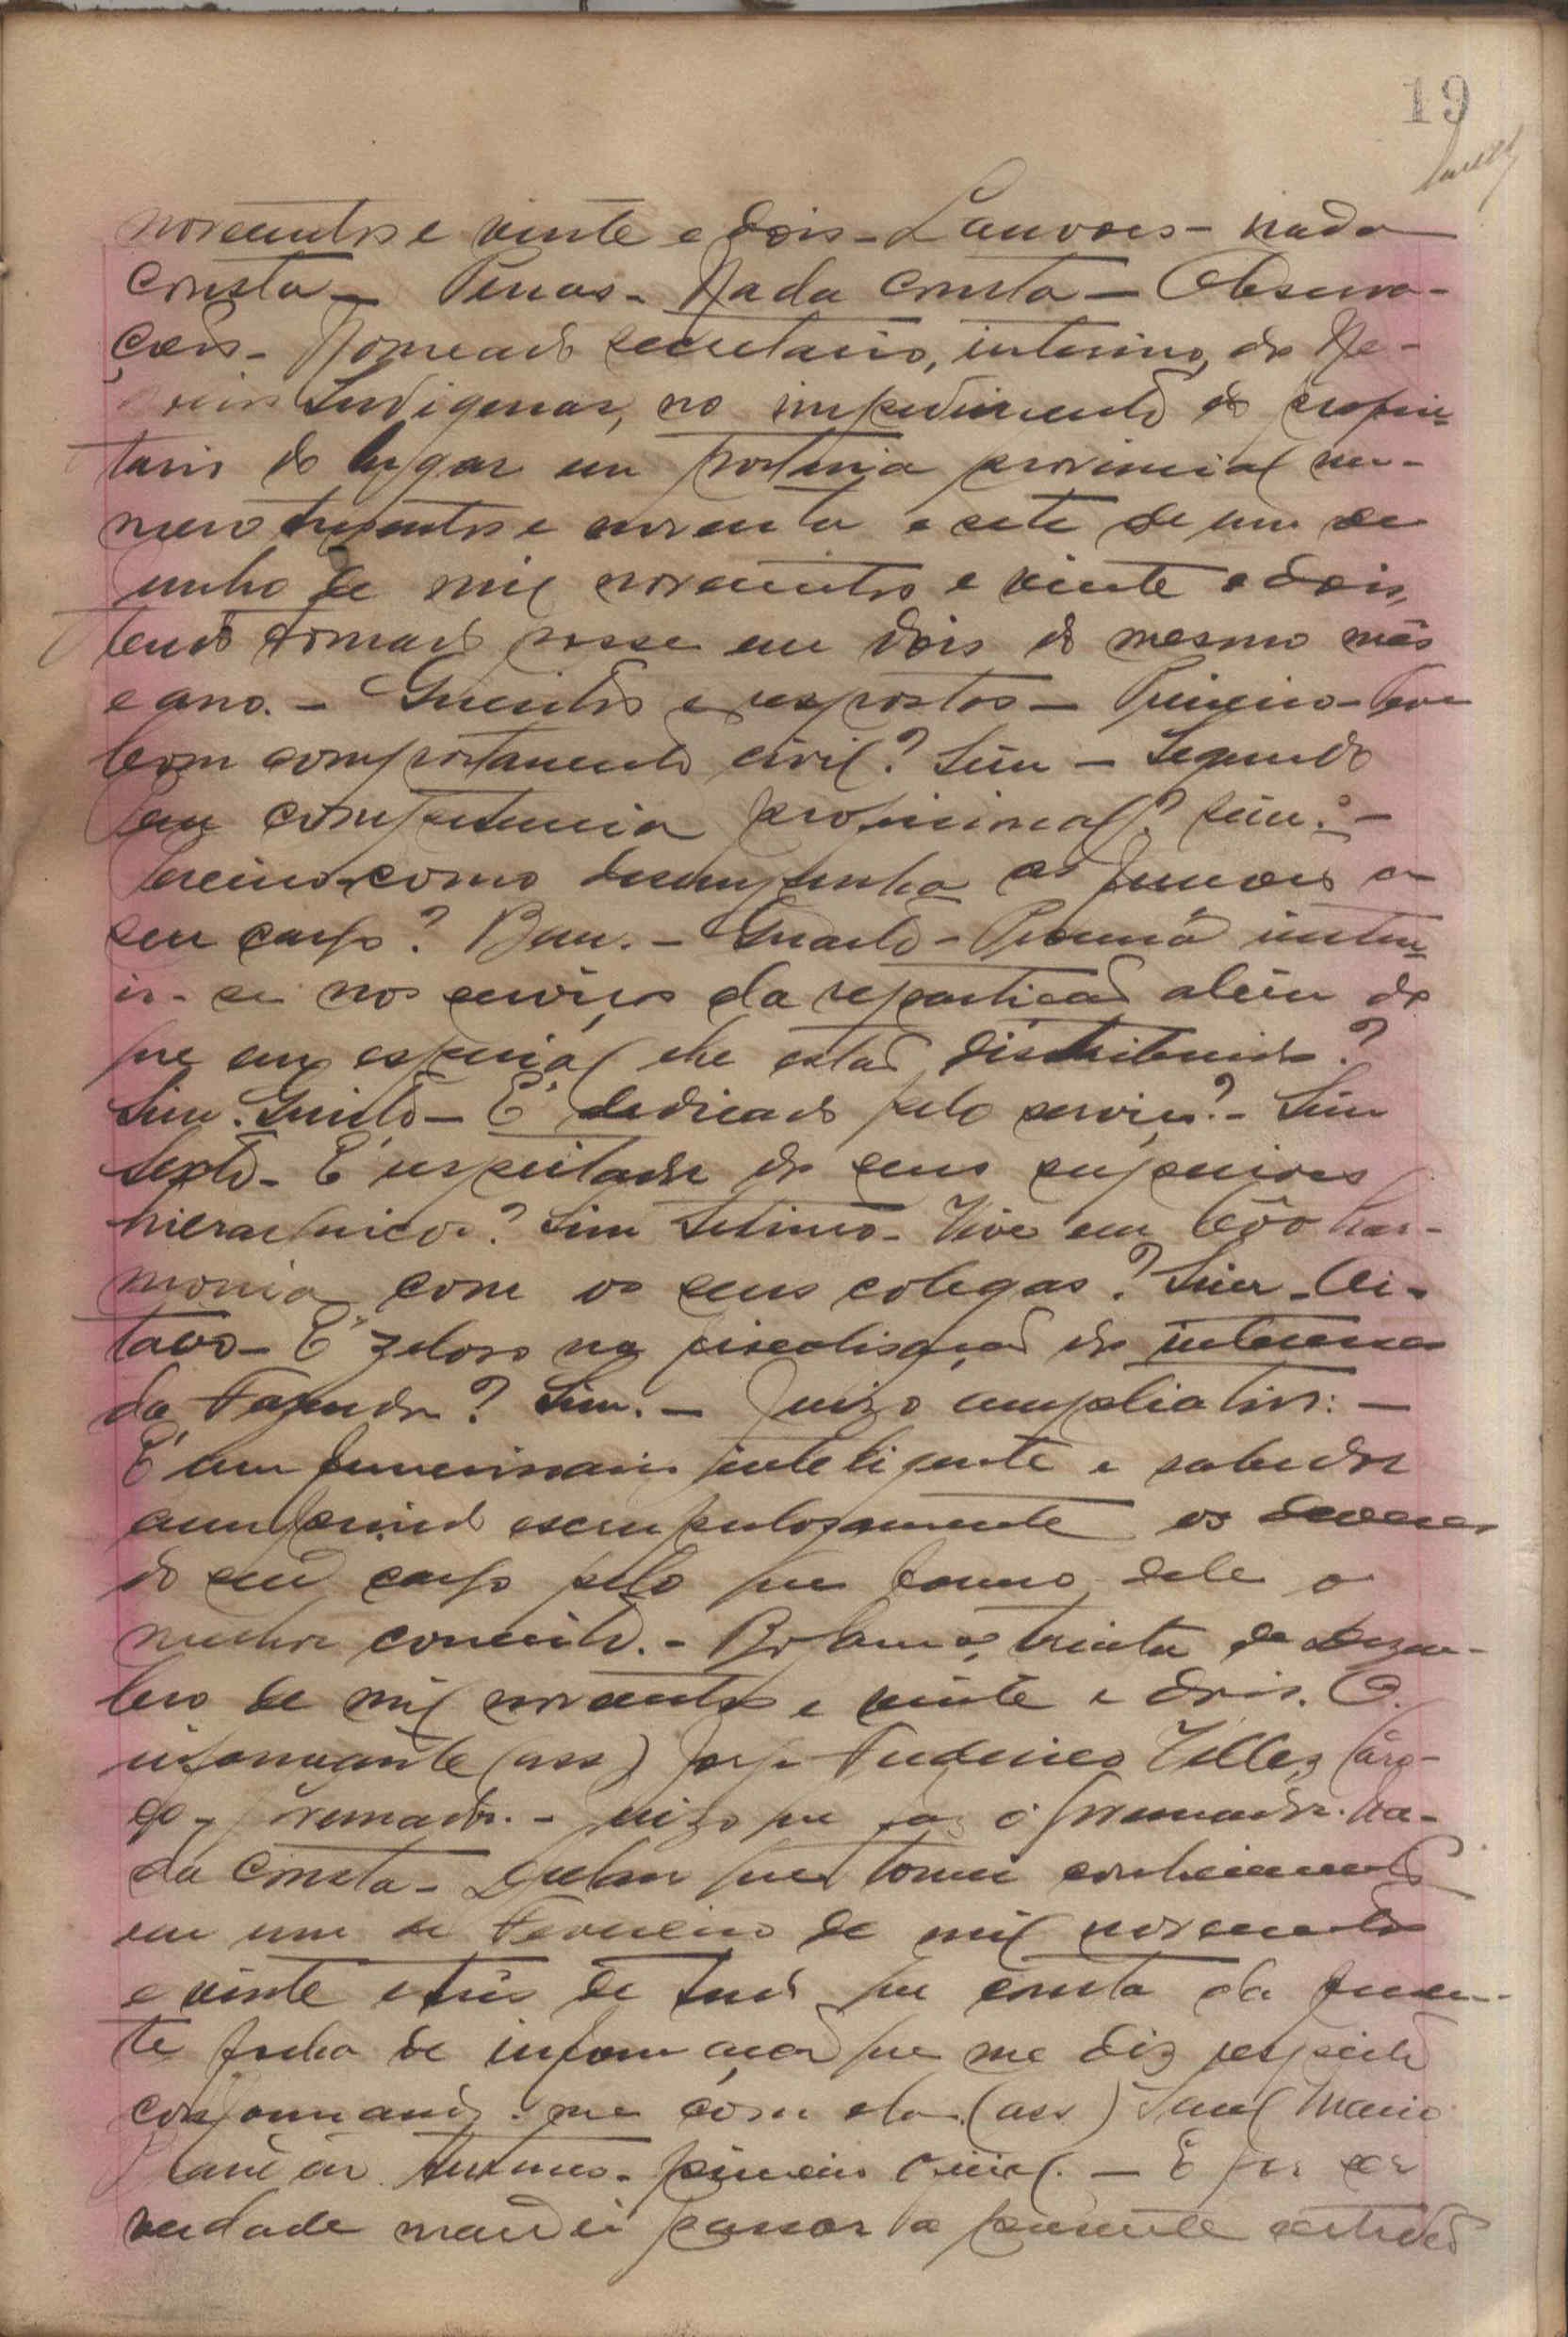 19
novecentos e vinte e dois - Louvores - nada
consta - Penas - Nada consta - Observa-
ções - Nomeado secretario, interino, dos Ne-
gocios Indigenas, no impedimento do proprie-
tario do lugar em portaria provincial nu-
mero trezentos e noventa e sete de um de
junho de mil novecentos e vinte e dois,
tendo tomado posse em dois do mesmo mês
e ano. - Quesitos e respostas - Primeiro - Tem
bom comportamento civil? Sim - Segundo
Tem competencia profissional? Sim. -
Terceiro - como desempenha as funções a
seu cargo? Bem. - Quarto - Procura instru-
ir-se nos serviços da repartição além do
que em especial lhe está distribuido?
Sim. Quinto - É dedicado pelo serviço? - Sim
Sexto - É respeitador dos seus superiores
hierarchicos? Sim Setimo - Vive em bôa har-
monia com os seus colegas? Sim - Oi-
tavo - É zeloso na fiscalisação dos interesses
da Fazenda? Sim. - Juizo ampliativo: -
É um funcionario inteligente e sabedor
cumprindo escrupulosamente os deveres
do seu cargo pelo que formo dele o
melhor conceito. - Bolama, trinta de Dezem-
bro de mil novecentos e vinte e dois. O
informante (ass) Jorge Frederico Vellez Caro-
ço - governador. - Juizo que faz o governador. Na-
da consta - Declaro que tomei conhecimento
em um de Fevereiro de mil novecentos
e vinte e três de tudo que consta da presen-
te folha de informação que me diz respeito
conformando-me com ela. (ass) Saul Mario
primeiro oficial. - E por ser
verdade mandei passar a presente certidão